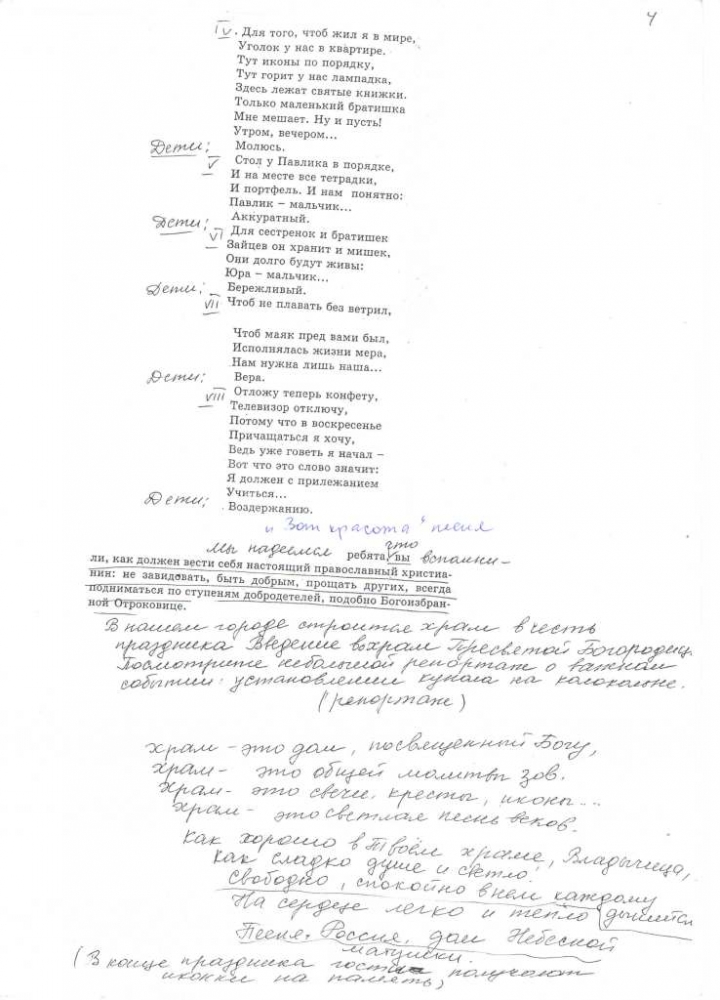 4
IV. Для того, чтоб жил я в мире,
Уголок у нас в квартире.
Тут иконы по порядку,
Тут горит у нас лампадка,
Здесь лежат святые книжки.
Только маленький братишка
Мне мешает. Ну и пусть!
Утром, вечером...
Дети: Молюсь.
V Стол у Павлика в порядке,
И на месте все тетрадки,
И портфель. И нам понятно:
Павлик – мальчик...
Дети: Аккуратный.
VI Для сестренок и братишек
Зайцев он хранит и мишек,
Они долго будут живы:
Юра – мальчик...
Дети: Бережливый.
VII Чтоб не плавать без ветрил,
Чтоб маяк пред вами был,
Исполнялась жизни мера,
Нам нужна лишь наша...
Дети: Вера.
VIII Отложу теперь конфету,
Телевизор отключу,
Потому что в воскресенье
Причащаться я хочу,
Ведь уже говеть я начал –
Вот что это слово значит:
Я должен с прилежанием
Учиться...
Дети: Воздержанию.
красота" песня
Мы надеемся ребята, что вы вспомни-
ли, как должен вести себя настоящий православный христиа-
нин: не завидовать, быть добрым, прощать других, всегда
подниматься по ступеням добродетелей, подобно Богоизбран-
ной Отроковице.
В нашем городе строится храм в честь
праздника Введение во храм Пресвятой Богородицы.
Посмотрите небольшой репортаж о важном
событии: установлении купола на колокольне.
(репортаж)
храм – это дом, посвященный Богу,
храм – это общей молитвы зов.
храм – это свечи, кресты, иконы...
храм – это светлая песнь веков.
Как хорошо в Твоём храме, Владычица,
как сладко душе и светло!
Свободно, спокойно в нем каждому дышится
На сердце легко и тепло
Песня: Россия, дом Небесной
матушки.
(В конце праздника гости получают
иконки на память)